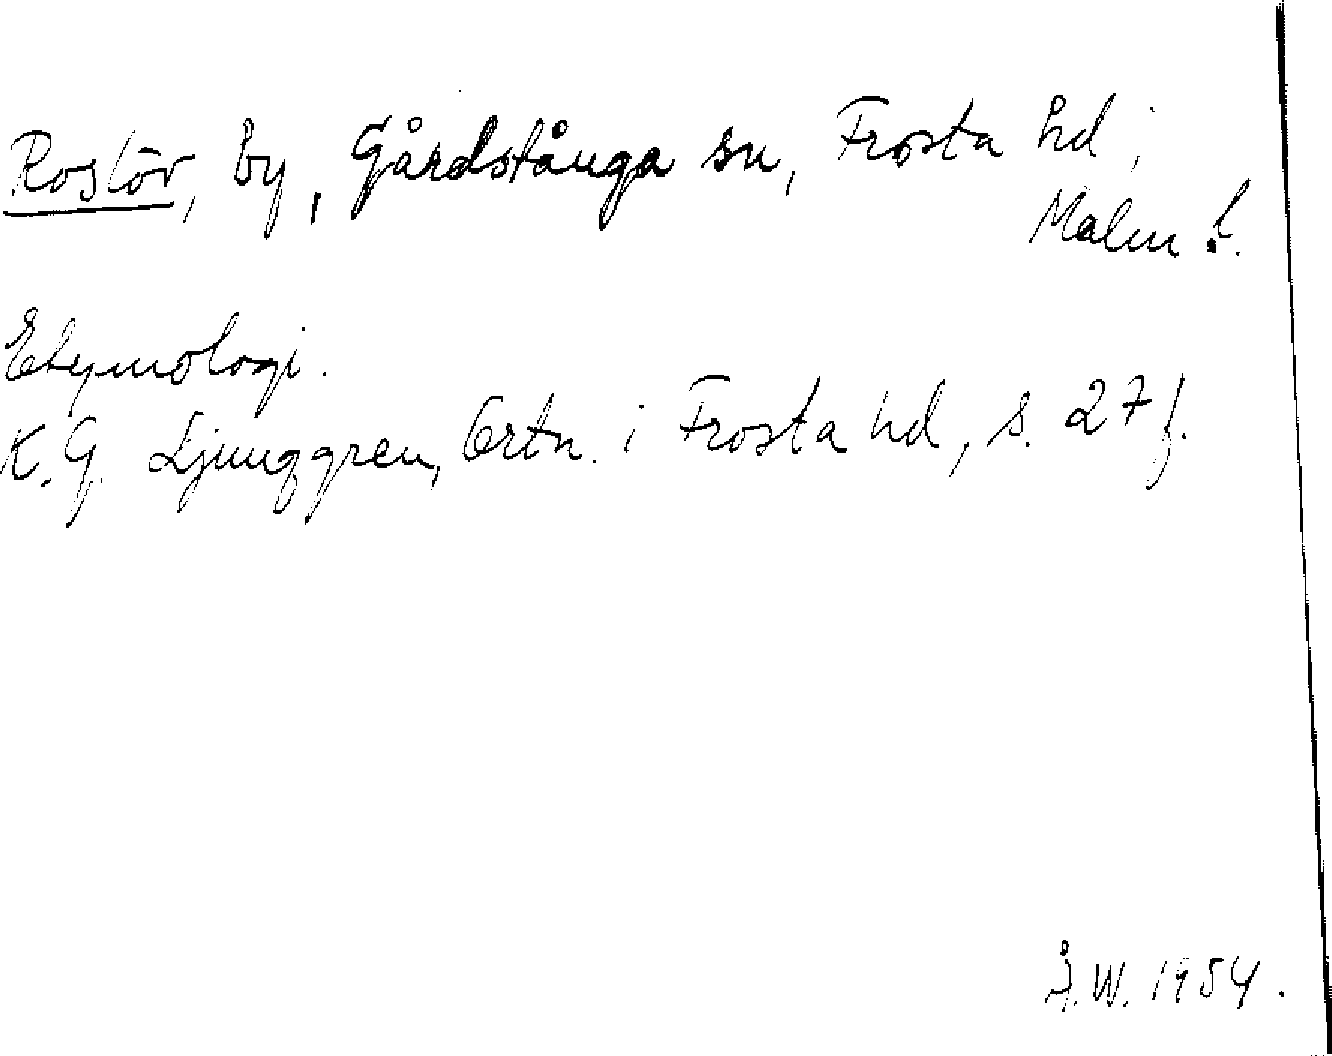 Roslöv, by, Gårdstånga sn, Frosta hd,
Malm. l.
Etymologi.
K. G. Ljunggren, Ortn. i Frosta hd, s. 27 f.
Å.W. 1954.